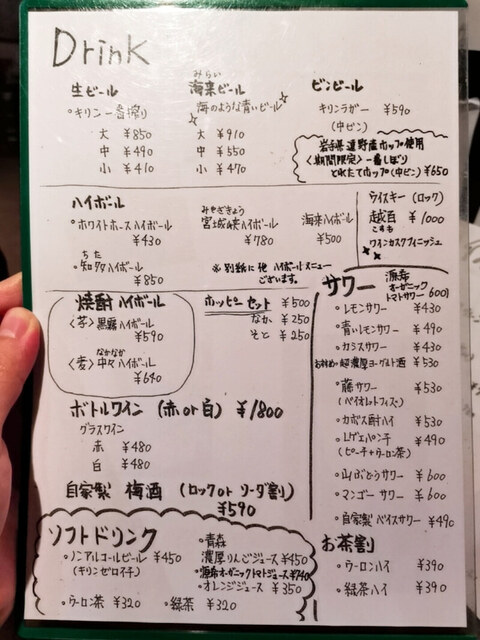 Drink
生ビール
・キリン一番搾り
大 ¥850
中 ¥490
小 ¥410
みらい
海来ビール
海のような青いビール
大 ¥910
中 ¥550
小 ¥470
ビンビール
キリンラガー ¥590
(中ビン)
岩手県遠野産ホップ使用
〈期間限定〉一番しぼり
とれたてホップ(中ビン) ¥650
ハイボール
・ホワイトホースハイボール
¥430
ちた
・知多ハイボール
¥850
みやぎきょう
宮城峡ハイボール
¥780
海来ハイボール
¥500
※別紙に他 ハイボールメニュー
ございます。
ウイスキー (ロック)
越百 ¥1000
こすも
ワインカスクフィニッシュ
焼酎ハイボール
〈芋〉黒霧ハイボール
¥590
なかなか
〈麦〉中々ハイボール
¥640
ホッピーセット ¥500
なか ¥250
そと ¥250
ボトルワイン (赤or白) ¥1800
グラスワイン
赤 ¥480
白 ¥480
自家製 梅酒 (ロックor ソーダ割)
¥590
サワー
オーガニック
トマトサワー 600
・レモンサワー ¥430
・青いレモンサワー ¥490
・カシスサワー ¥430
超濃厚ヨーグルト酒 ¥530
・藤サワー ¥530
(バイオレットフィズ)
・カボス酎ハイ ¥530
・レゲエパンチ ¥490
(ピーチ+ウーロン茶)
・山ぶどうサワー ¥600
・マンゴーサワー ¥600
・自家製バイスサワー ¥490
お茶割
・ウーロンハイ ¥390
・緑茶ハイ ¥390
ソフトドリンク
・ノンアルコールビール ¥450
(キリンゼロイチ)
・ウーロン茶 ¥320
・緑茶 ¥320
・青森
濃厚りんごジュース ¥450
オーガニックトマトジュース ¥740
・オレンジジュース ¥350